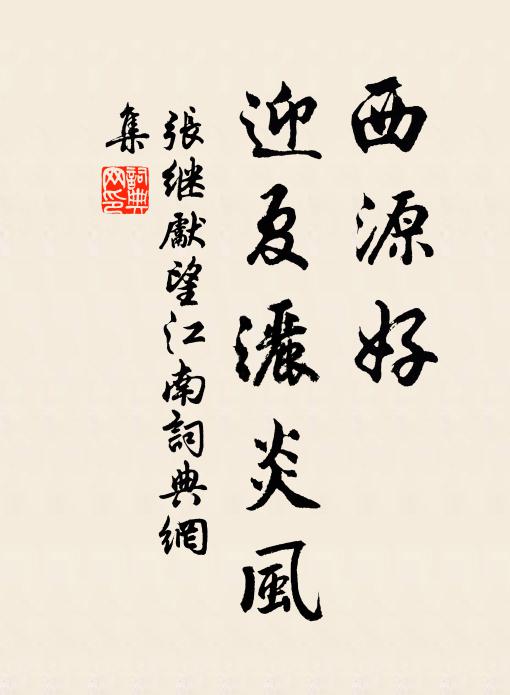 西源好
迎夏灑炎風
張继獻望江南詞典網
集
詞典網印